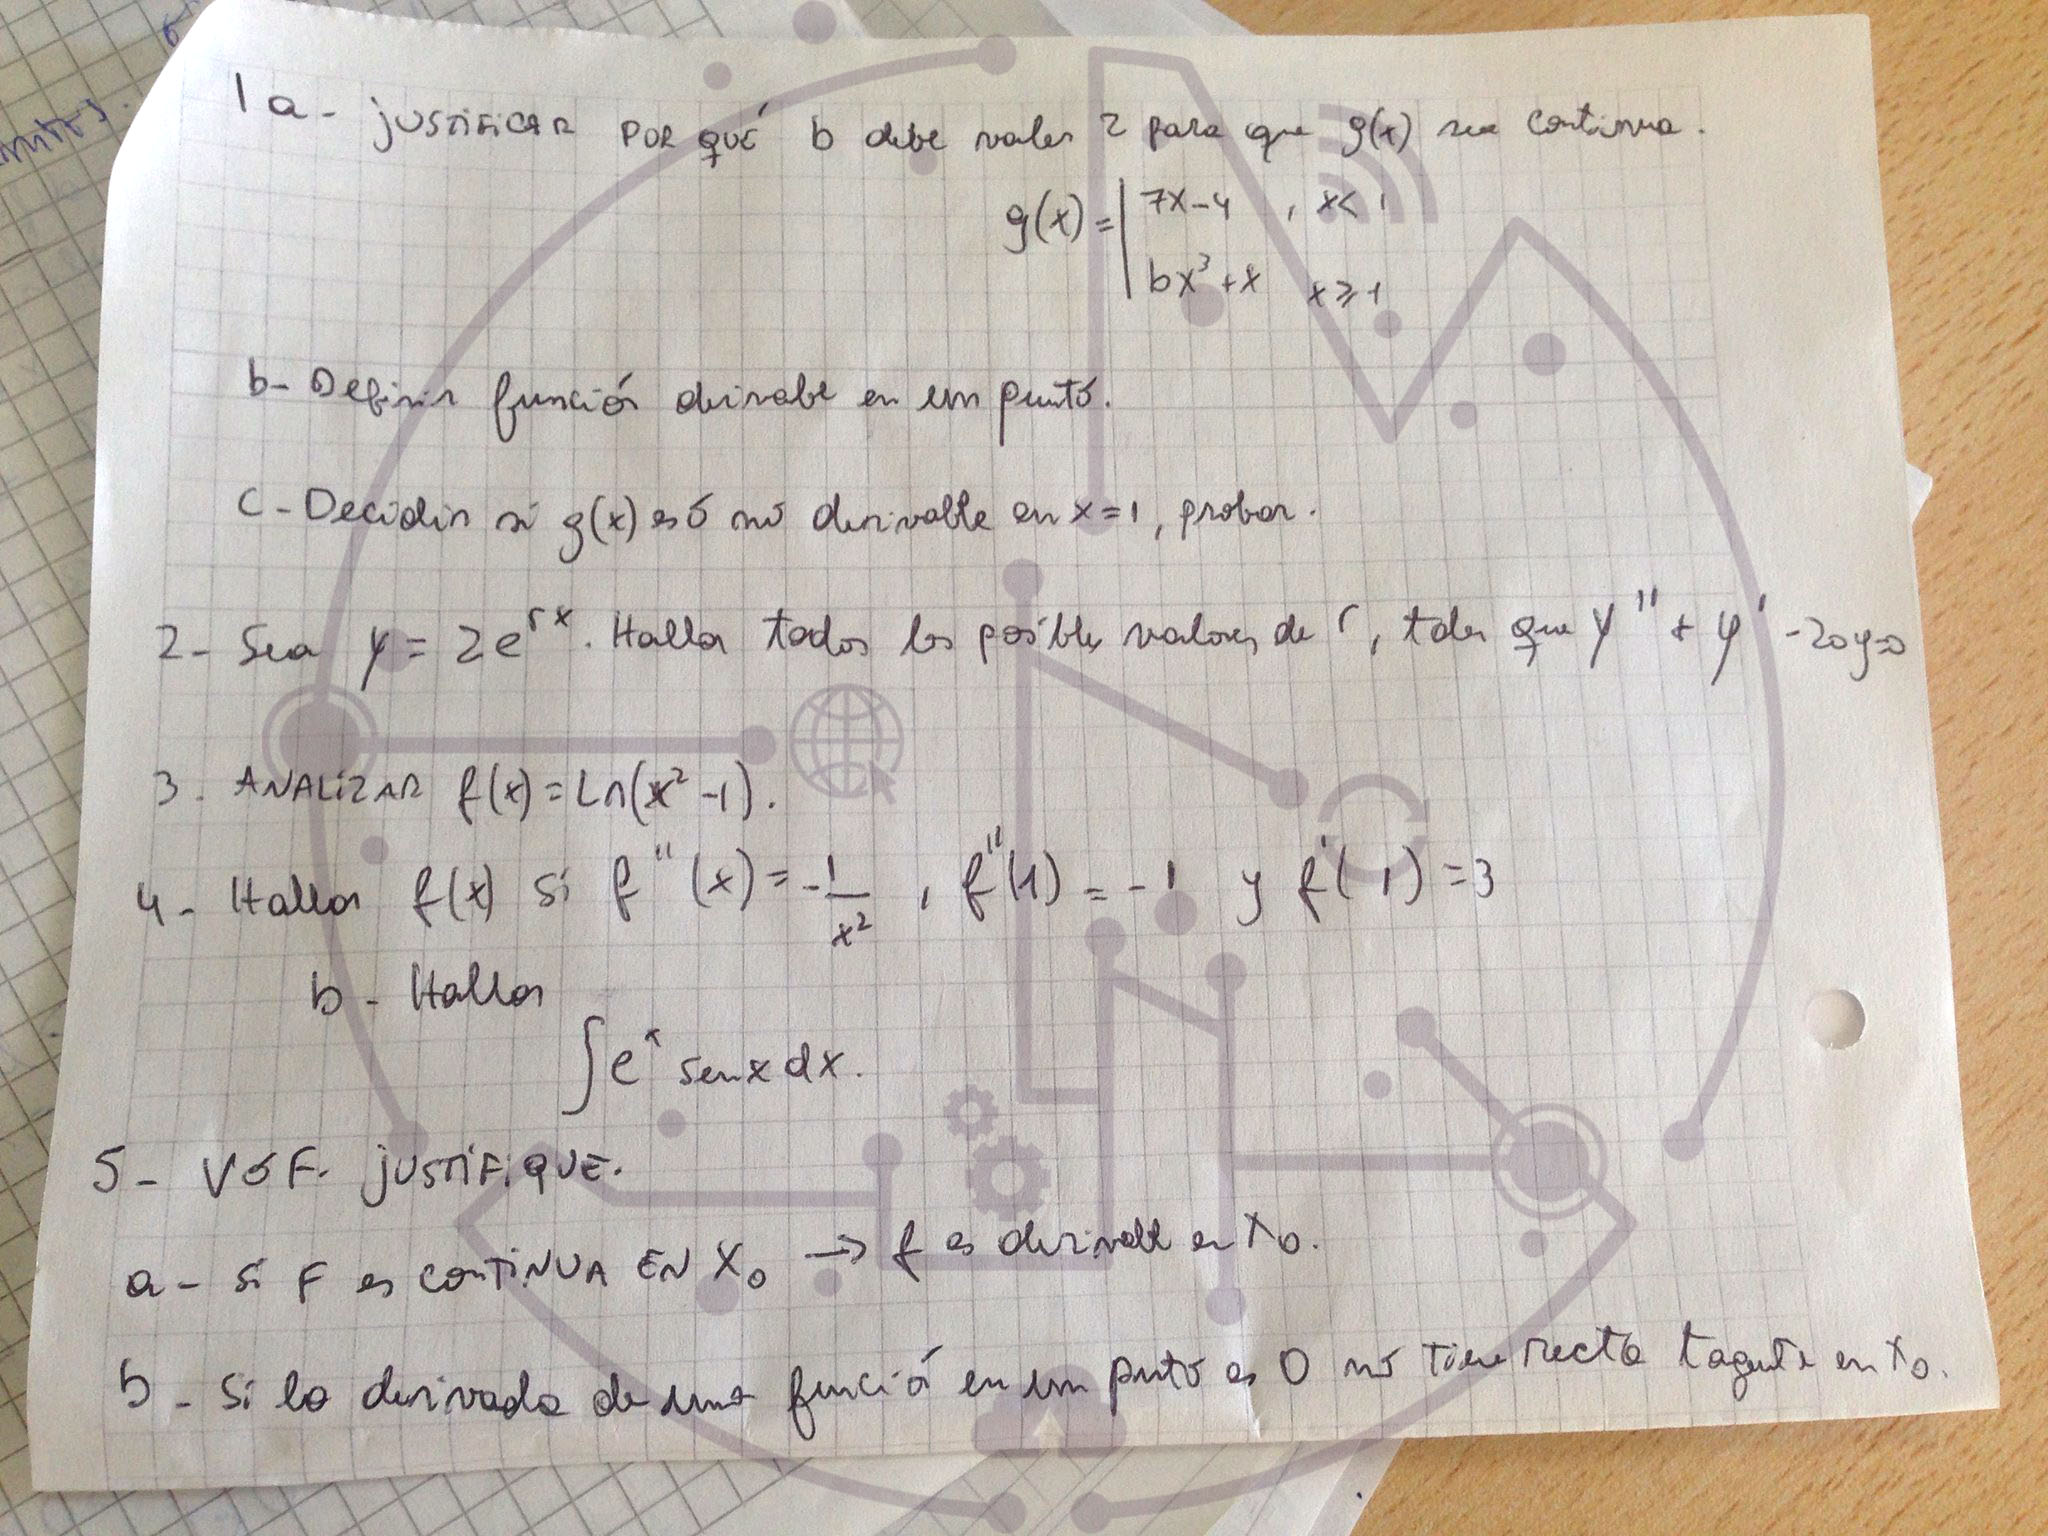 1 a - justificar por qué b debe valer 2 para que g(x) sea continua.
g(x) = | 7x-4 , x< 1
bx³+x x≥1
b- Definir función derivable en un punto.
c - Decidir si g(x) es ó nó derivable en x=1, probar.
2- Sea y = 2e^rx. Hallar todos los posibles valores de r, tales que y'' + y' -20y=0
3. ANALIZAR f(x) = Ln(x²-1).
4- Hallar f(x) si f''(x) = -1/x² , f''(1) = -1 y f'(1) = 3
b - Hallar
∫e^x senx dx.
5- V ó F. JUSTIFIQUE.
a - si F es continua EN X₀ → f es derivable en X₀.
b - Si la derivada de una función en un punto es 0 nó tiene recta tagente en x₀.